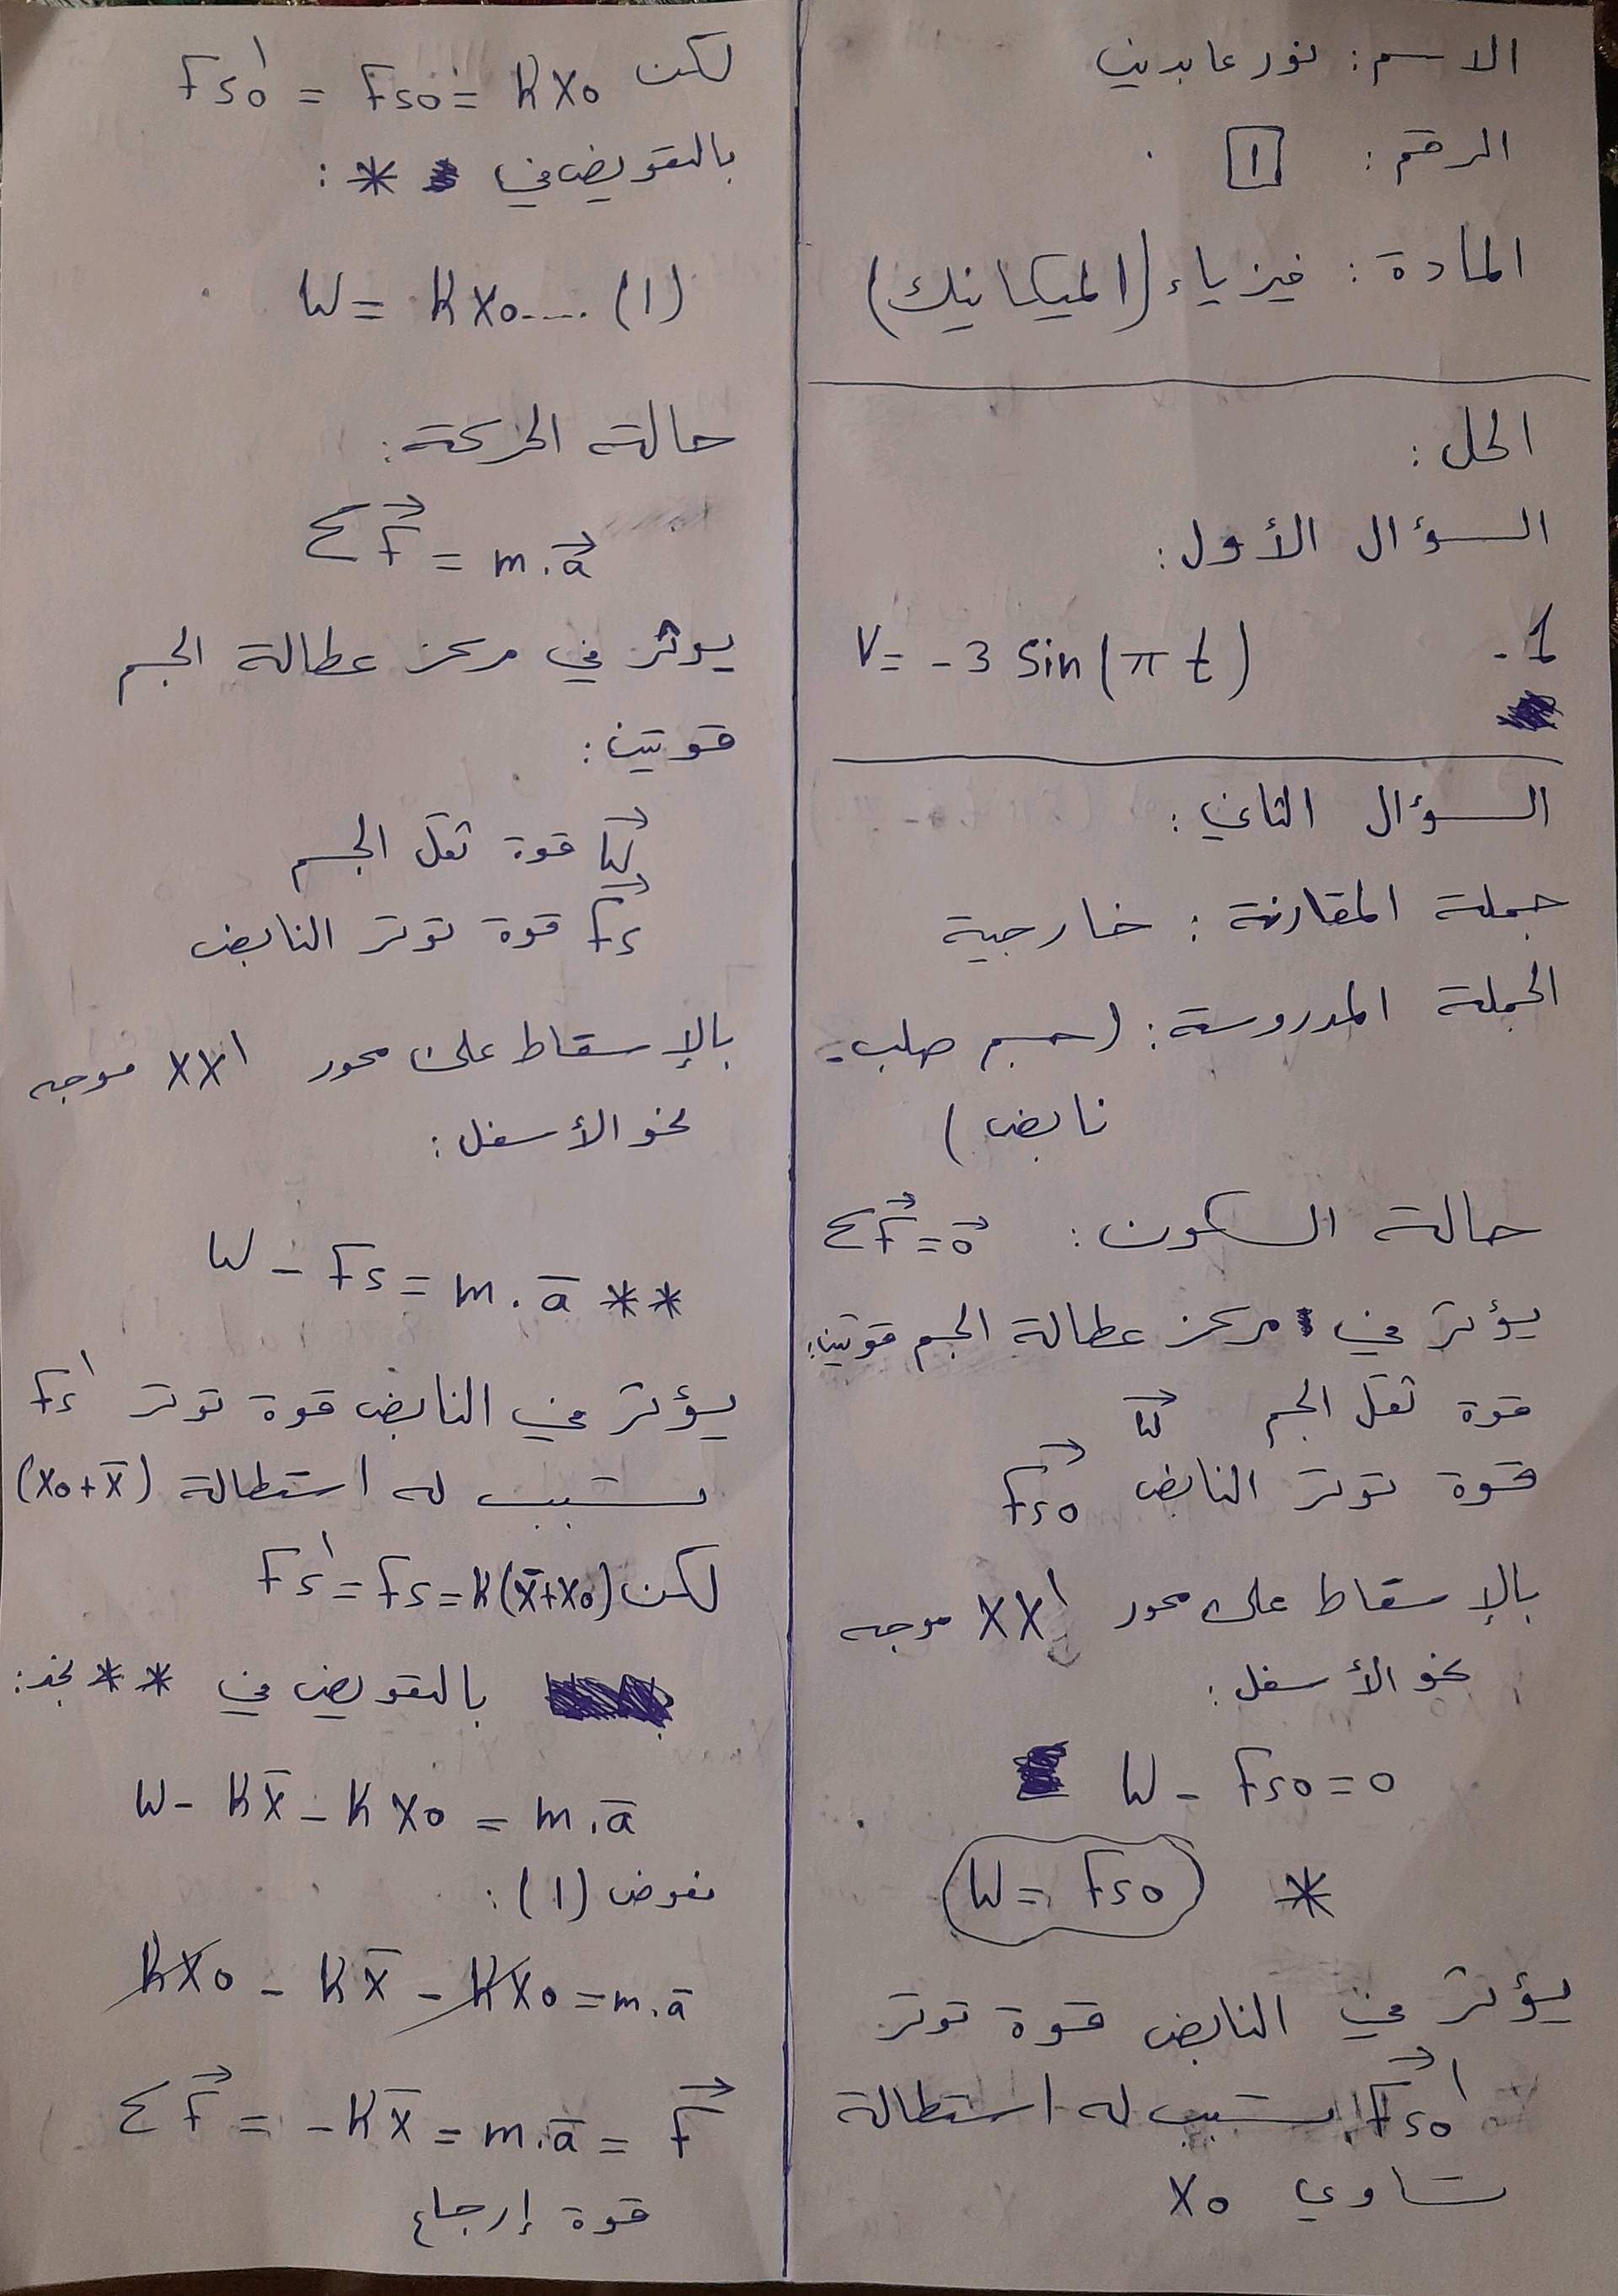 الاسم: نور عابدين
الرقم: 1
المادة: فيزياء (الميكانيك)
الحل:
السؤال الأول:
1- V = - 3 sin(π t)
السؤال الثاني:
جملة المقارنة: خارجية
الجملة المدروسة: (جسم صلب -
نابض)
حالة السكون: ΣF⃗ = 0⃗
يؤثر في مركز عطالة الجسم قوتين:
قوة ثقل الجسم W⃗
قوة توتر النابض F⃗s0
بالإسقاط على محور xx' موجه
نحو الأسفل:
W - Fs0 = 0
* W = Fs0
يؤثر في النابض قوة توتر
F⃗s0' تسبب له استطالة
تساوي x0
لكن Fs0' = Fs0 = K x0
بالتعويض في *:
W = K x0 .... (1)
حالة الحركة:
ΣF⃗ = m.a⃗
يؤثر في مركز عطالة الجسم
قوتين:
W⃗ قوة ثقل الجسم
F⃗s قوة توتر النابض
بالإسقاط على محور xx' موجه
نحو الأسفل:
W - Fs = m . a̅ **
يؤثر في النابض قوة توتر Fs'
تسبب له استطالة (x0 + x̅)
لكن Fs' = Fs = K(x̅ + x0)
بالتعويض في ** نجد:
W - K x̅ - K x0 = m . a̅
نعوض (1):
K x0 - K x̅ - K x0 = m . a̅
ΣF⃗ = - K x̅ = m . a̅ = F⃗
قوة إرجاع